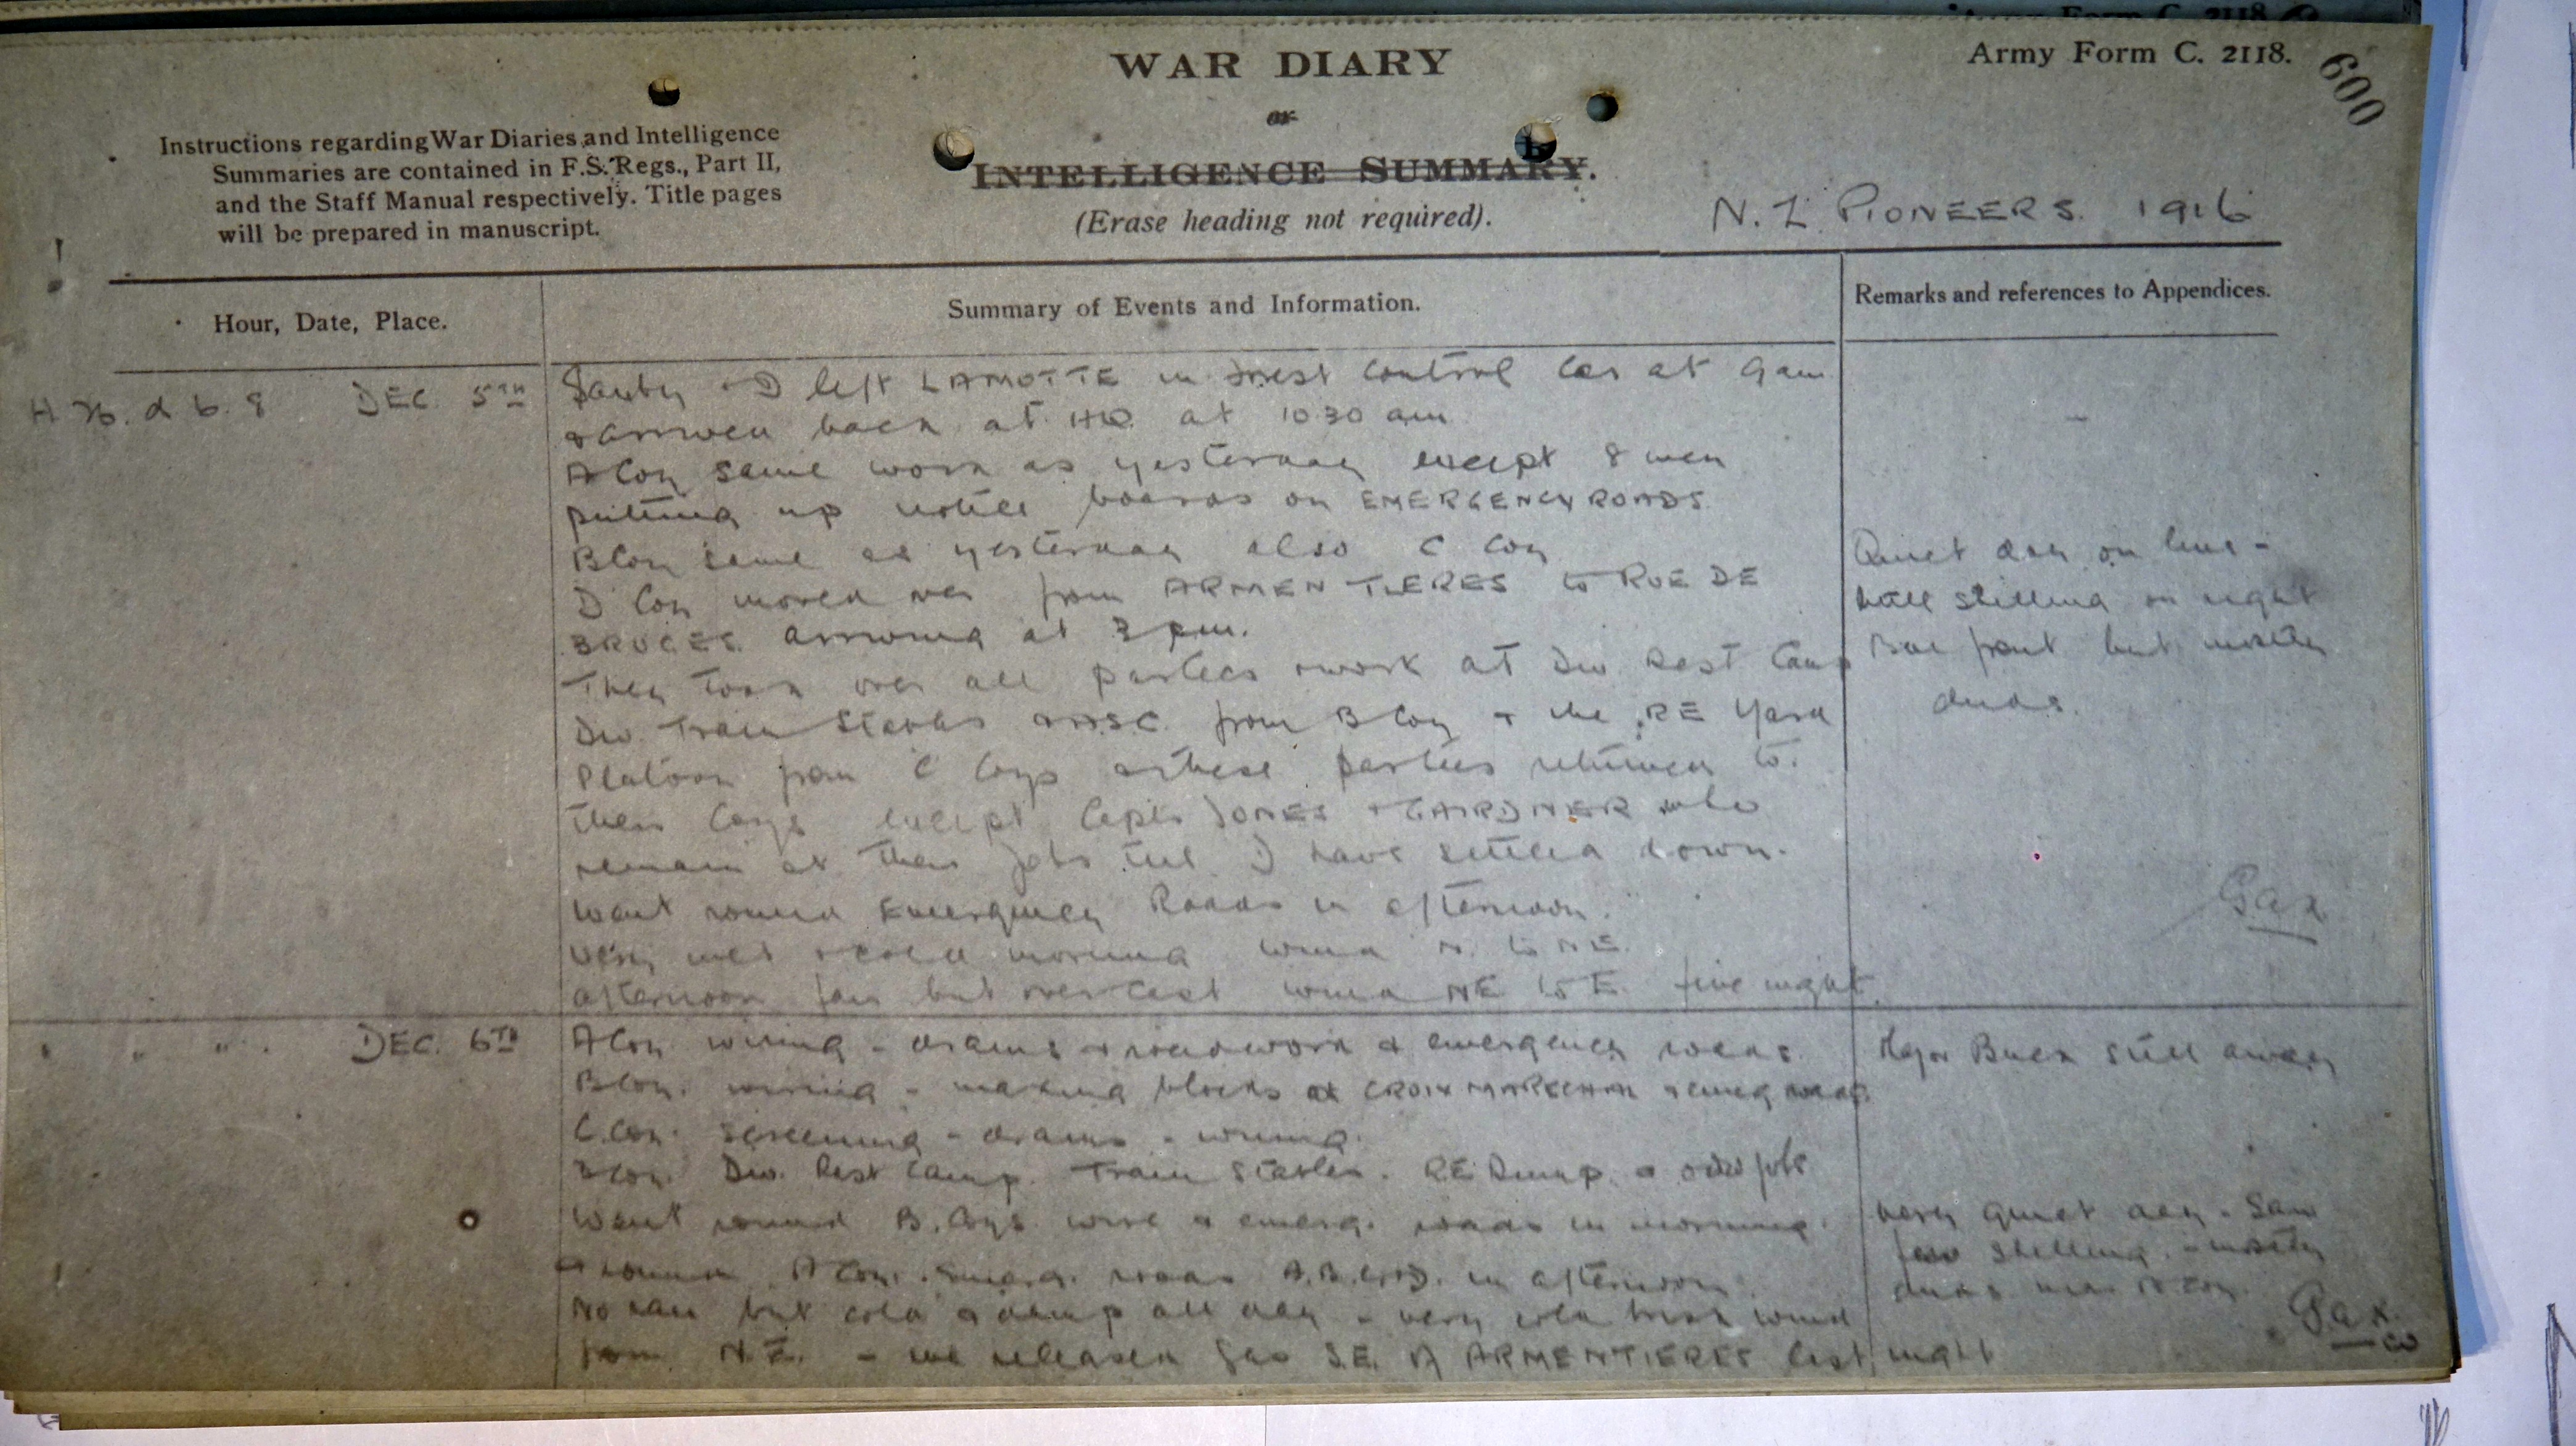 Army Form C. 2118.
600
WAR DIARY
or
INTELLIGENCE SUMMARY.
(Erase heading not required).
Instructions regarding War Diaries and Intelligence
Summaries are contained in F.S. Regs., Part II,
and the Staff Manual respectively. Title pages
will be prepared in manuscript.
N.Z. PIONEERS. 1916
Hour, Date, Place.
Summary of Events and Information.
Remarks and references to Appendices.
H 36. d 6. 8 DEC. 5TH
& I left LAMOTTE in Forest Control Car at 9 am
& arrived back at HQ at 10.30 am
A Coy same work as yesterday except 8 men
putting up notice boards on EMERGENCY ROADS.
B Coy same as yesterday also C Coy
D Coy moved over from ARMENTIERES to RUE DE
BRUGES arriving at 3 pm.
They took over all parties & work at Div Rest Camp
Div. Train Stables & ASC from B Coy & the RE Yard
Platoon from C Coy & these parties returned to
their Coys except Capts JONES & GAIRDNER who
remain at their jobs till D have settled down.
Went round Emergency Roads in afternoon.
Very wet & cold morning wind N. to NE.
afternoon fair but overcast wind NE to E. fine night.
Quiet day on line -
little shelling on right
Bde front but mostly
duds.
" " " . DEC. 6TH
A Coy wiring - drains & roadwork & emergency roads.
B Coy. wiring - making blocks at CROIX MARECHAL & emerg roads.
C Coy. screening - drains - wiring.
D Coy. Div. Rest Camp. Train Stables. RE Dump. & odd jobs
Went round B. Coys wire & emerg. roads in morning.
& round A Coy. emerg. roads A.B.C.&D. in afternoon.
No rain but cold & damp all day - very cold fresh wind
from N.E. - we released gas S.E. of ARMENTIERES last night
Major Buck still away
Very quiet day. Saw
few shelling - mostly
duds near A Coy.